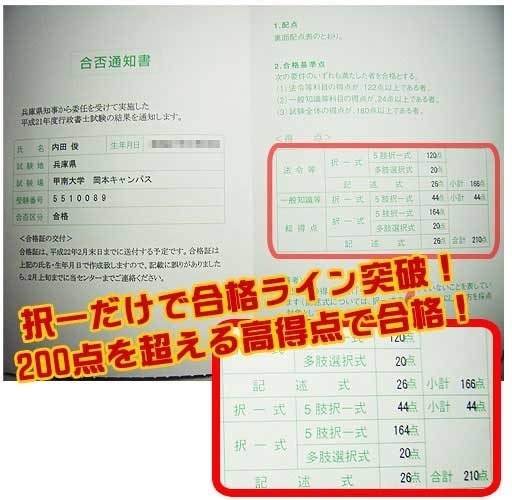 合否通知書
兵庫県知事から委任を受けて実施した
平成21年度行政書士試験の結果を通知します。
氏名 内田 俊 生年月日
試験地 兵庫県
試験場 甲南大学 岡本キャンパス
受験番号 5510089
合否区分 合格
<合格証の交付>
合格証は、平成22年2月末日までに送付する予定です。合格証は
上記の氏名・生年月日で作成致しますので、記載に誤りがありました
ら、2月上旬までに当センターまでご連絡ください。
1.配点
裏面配点表のとおり。
2.合格基準点
次の要件のいずれも満たした者を合格とする。
(1)法令等科目の得点が、122点以上である者。
(2)一般知識等科目の得点が、24点以上である者。
(3)試験全体の得点が、180点以上である者。
<得 点>
法令等 択一式 5肢択一式 120点
多肢選択式 20点
記述式 26点 小計 166点
一般知識等 択一式 5肢択一式 44点 小計 44点
総得点 択一式 5肢択一式 164点
多肢選択式 20点
記述式 26点 合計 210点
択一だけで合格ライン突破!
200点を超える高得点で合格!
120点
多肢選択式 20点
記述式 26点 小計 166点
択一式 5肢択一式 44点 小計 44点
択一式 5肢択一式 164点
多肢選択式 20点
記述式 26点 合計 210点